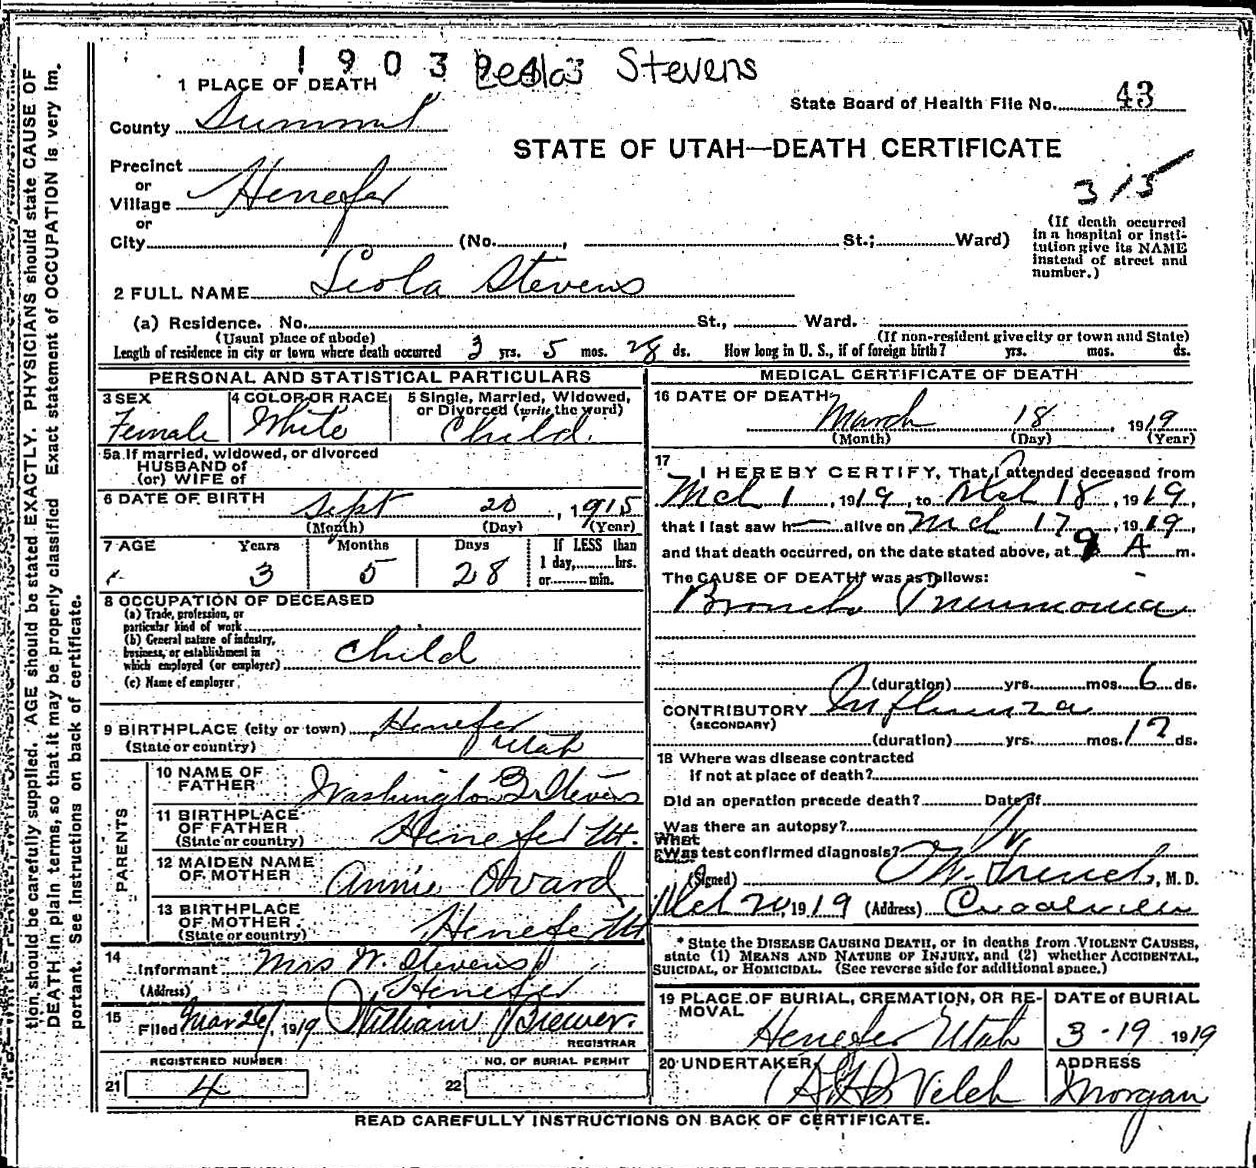 1903
Leola Stevens
1 PLACE OF DEATH
State Board of Health File No. 43
County Summit
STATE OF UTAH—DEATH CERTIFICATE
Precinct
or
Village Henefer
315
or
City (No. , St.; Ward)
(If death occurred
in a hospital or insti-
tution give its NAME
instead of street and
number.)
2 FULL NAME Leola Stevens
(a) Residence. No. St., Ward.
(Usual place of abode) (If non-resident give city or town and State)
Length of residence in city or town where death occurred 3 yrs. 5 mos. 28 ds. How long in U. S., if of foreign birth? yrs. mos. ds.
PERSONAL AND STATISTICAL PARTICULARS
3 SEX
Female
4 COLOR OR RACE
White
5 Single, Married, Widowed,
or Divorced (write the word)
Child.
5a If married, widowed, or divorced
HUSBAND of
(or) WIFE of
6 DATE OF BIRTH
Sept 20, 1915
(Month) (Day) (Year)
7 AGE Years Months Days If LESS than
1 day, hrs.
or min.
3 5 28
8 OCCUPATION OF DECEASED
(a) Trade, profession, or
particular kind of work
(b) General nature of industry,
business, or establishment in
which employed (or employer) Child
(c) Name of employer
9 BIRTHPLACE (city or town) Henefer
(State or country) Utah
PARENTS
10 NAME OF
FATHER Washington Stevens
11 BIRTHPLACE
OF FATHER
(State or country) Henefer Ut.
12 MAIDEN NAME
OF MOTHER Annie Ovard
13 BIRTHPLACE
OF MOTHER
(State or country) Henefer Ut
14
Informant Mrs W. Stevens
(Address) Henefer
15
Filed Mar 26, 1919 William Brewer.
REGISTRAR
REGISTERED NUMBER
21 4
NO. OF BURIAL PERMIT
22
MEDICAL CERTIFICATE OF DEATH
16 DATE OF DEATH
March 18, 1919
(Month) (Day) (Year)
17
I HEREBY CERTIFY, That I attended deceased from
Mch 1, 1919, to Mch 18, 1919,
that I last saw h alive on Mch 17, 1919,
and that death occurred, on the date stated above, at 9 A m.
The CAUSE OF DEATH* was as follows:
Broncho Pneumonia
(duration) yrs. mos. 6 ds.
CONTRIBUTORY Influenza
(SECONDARY)
(duration) yrs. mos. 17 ds.
18 Where was disease contracted
if not at place of death?
Did an operation precede death? Date of
Was there an autopsy?
What
Was test confirmed diagnosis?
(Signed) , M. D.
Mch 20, 1919 (Address) Coalville
* State the DISEASE CAUSING DEATH, or in deaths from VIOLENT CAUSES,
state (1) MEANS AND NATURE OF INJURY, and (2) whether ACCIDENTAL,
SUICIDAL, or HOMICIDAL. (See reverse side for additional space.)
19 PLACE OF BURIAL, CREMATION, OR RE-
MOVAL
Henefer Utah
DATE of BURIAL
3-19 1919
20 UNDERTAKER
Welch
ADDRESS
Morgan
READ CAREFULLY INSTRUCTIONS ON BACK OF CERTIFICATE.
tion should be carefully supplied. AGE should be stated EXACTLY. PHYSICIANS should state CAUSE OF
DEATH in plain terms, so that it may be properly classified. Exact statement of OCCUPATION is very im-
portant. See instructions on back of certificate.